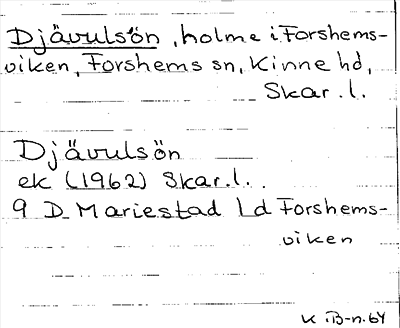 Djävulsön, holme i Forshems-
viken, Forshems sn, Kinne hd,
Skar. l.
Djävulsön
ek (1962) Skar. l.
9 D Mariestad Ld Forshems-
viken
K B-n. 64